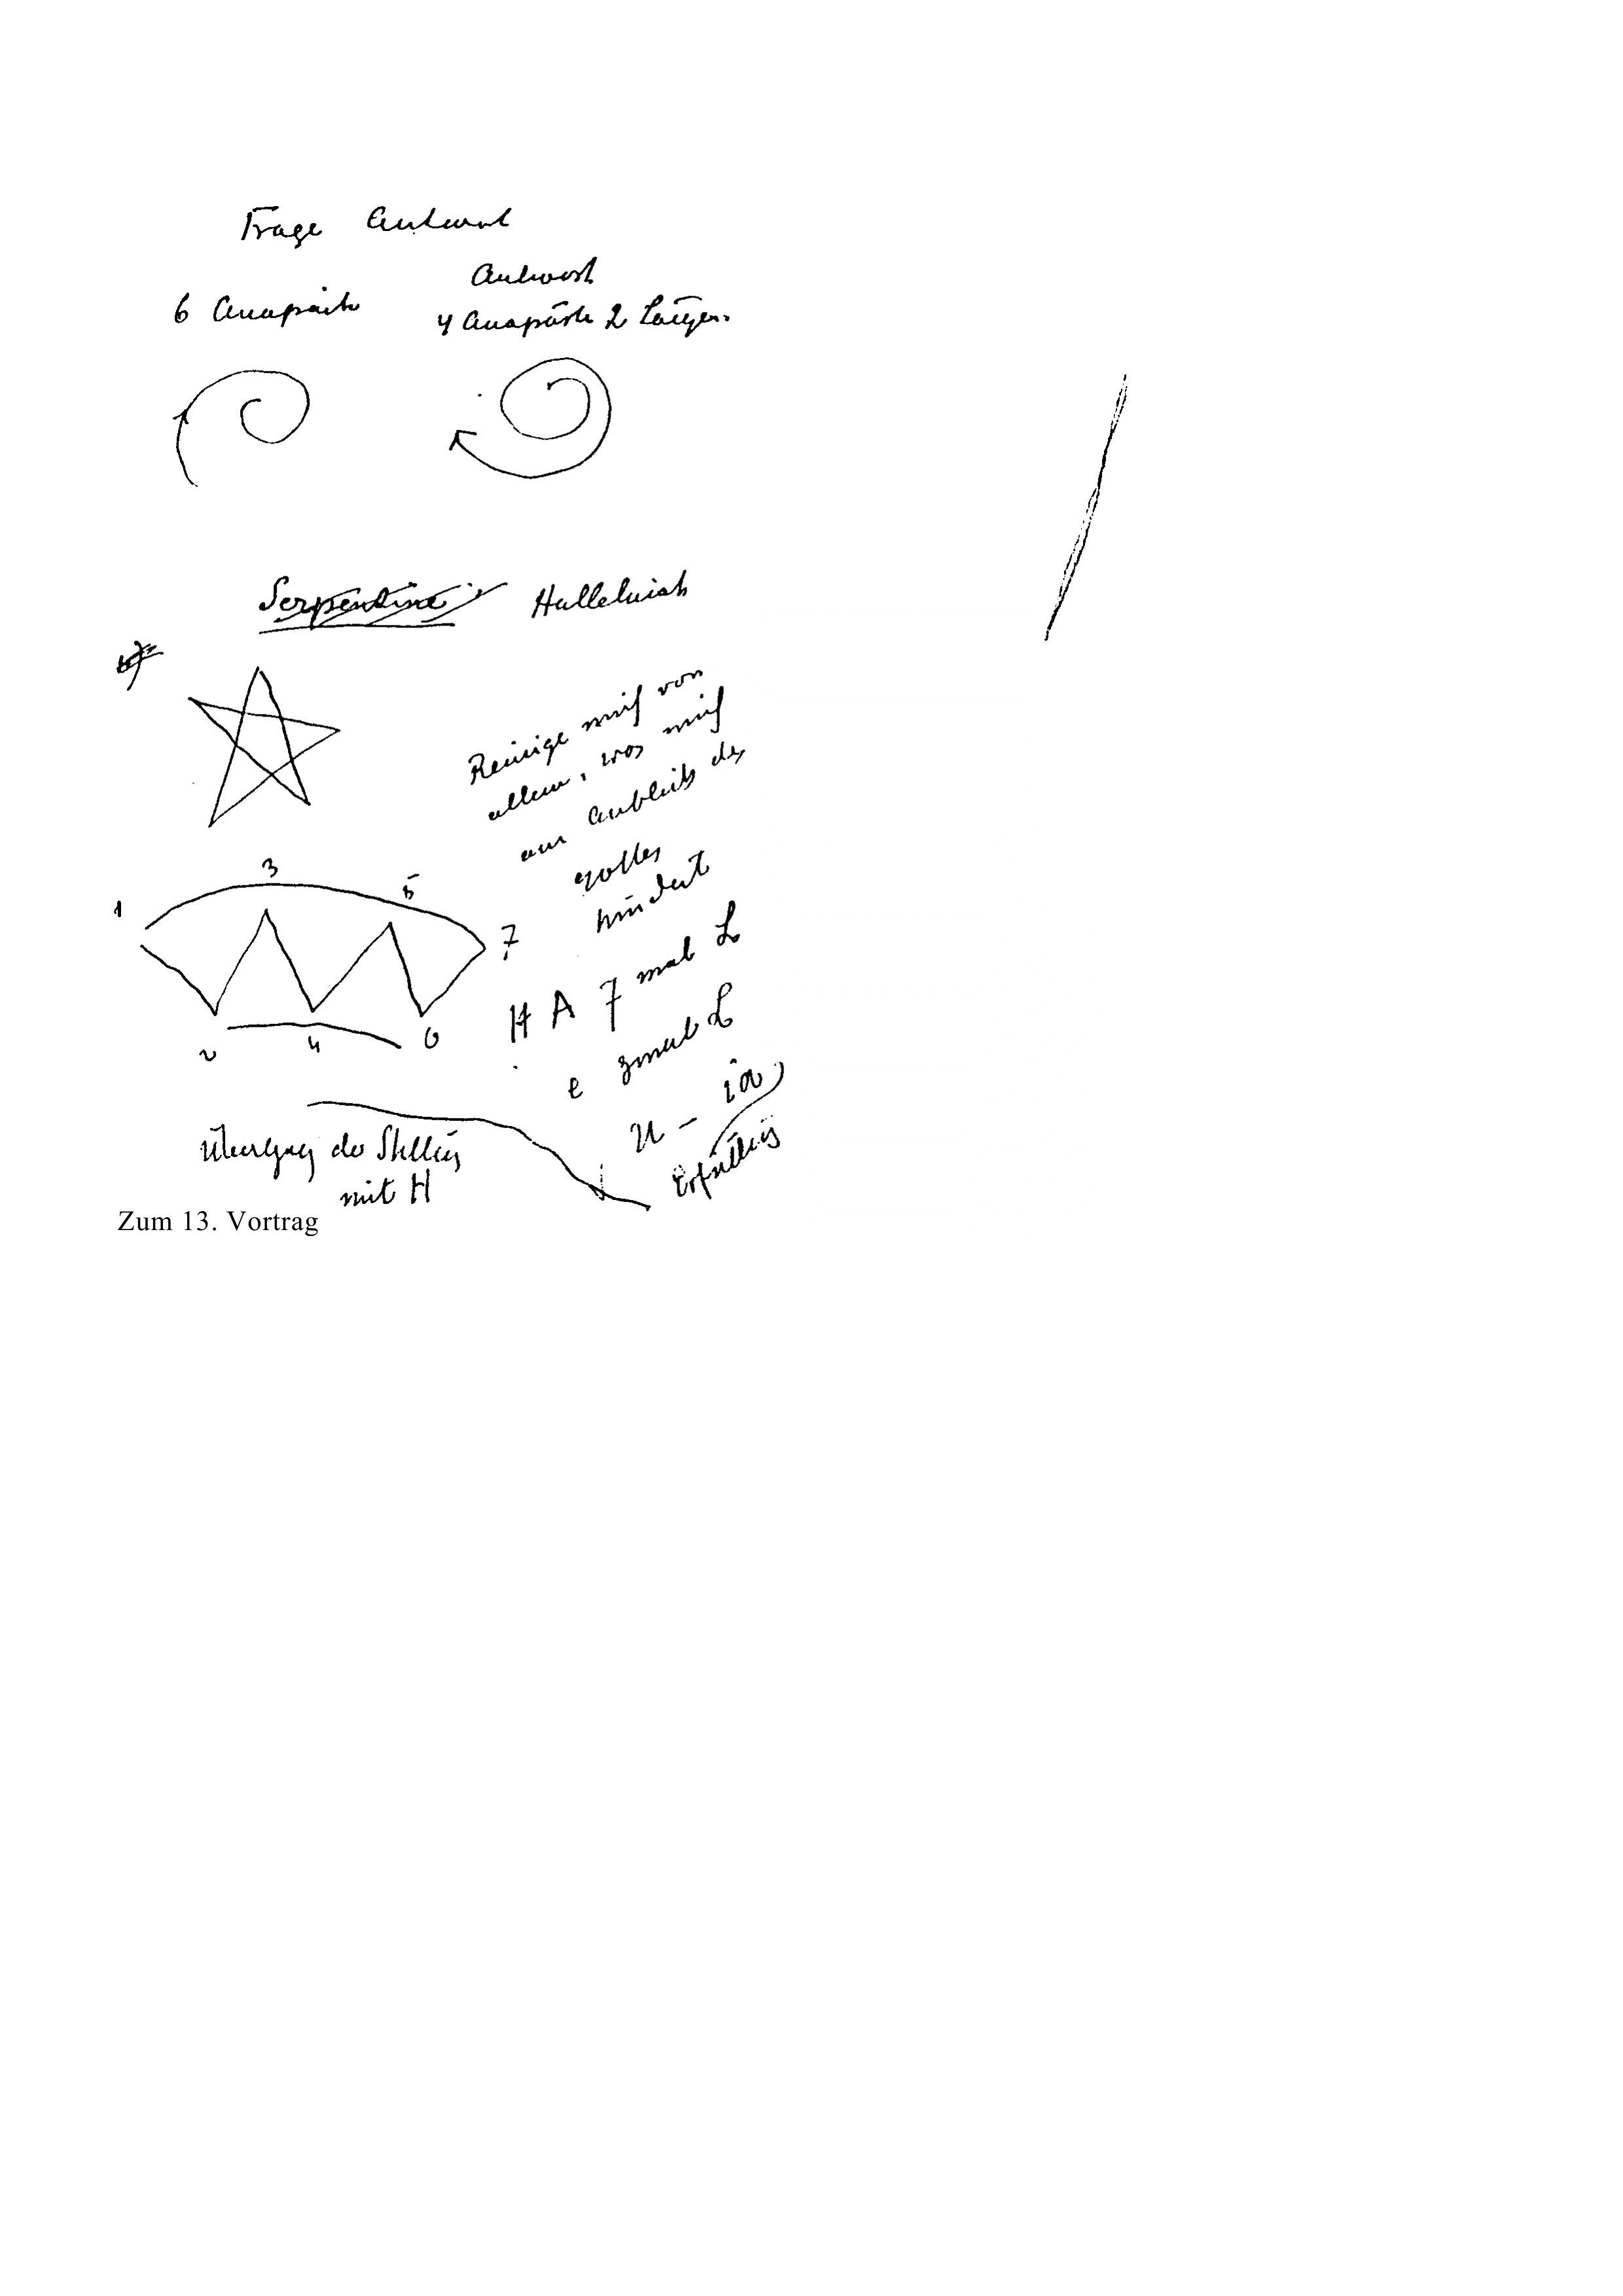 Frage Antwort
Antwort
6 Anapäste
4 Anapäste 2 Längen.
Serpentine Halleluiah
Reinige mich von
allem, was mich
am Anblick des
Gottes
hindert
1
3
5
7
2
4
6
H A 7 mal L
e 3mal L
U - ia
Erfüllung
Übergang der Stellung
mit H
Zum 13. Vortrag